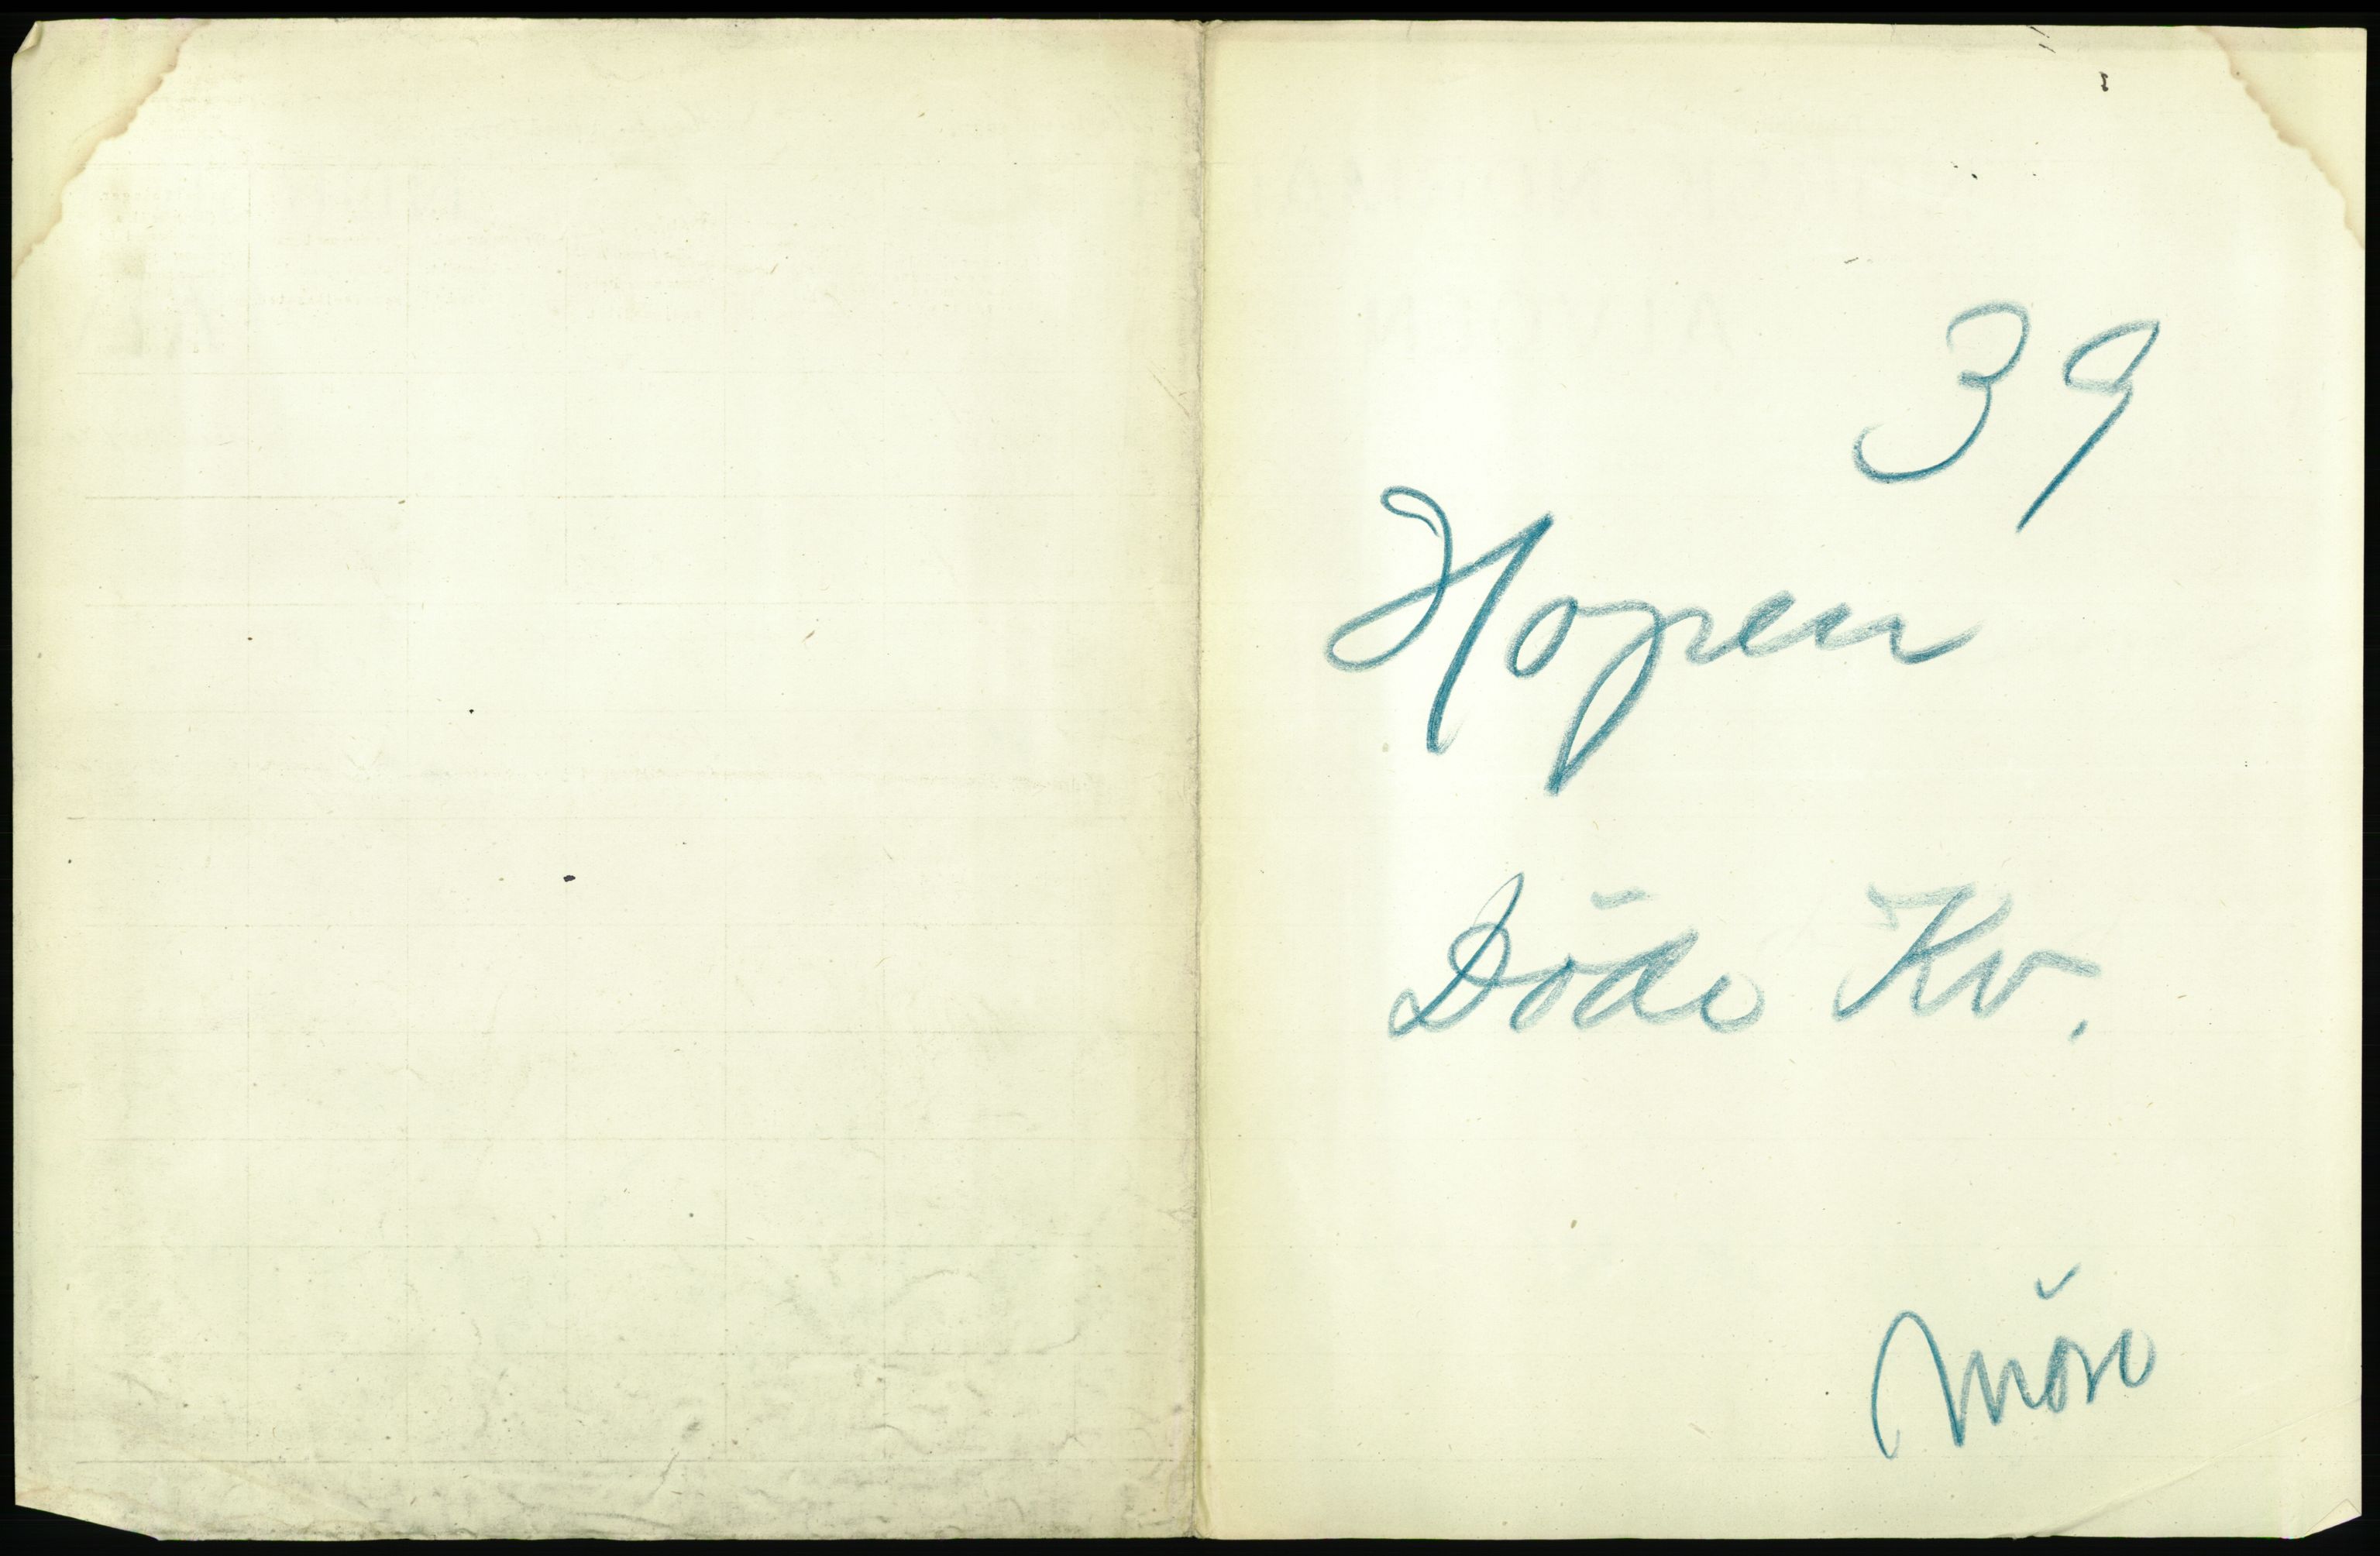 39
Hopen
Döde Kv.
Möre